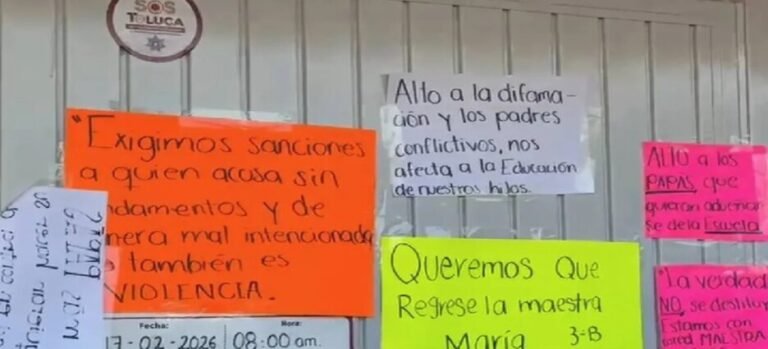 SOS
TOLUCA
"Exigimos sanciones
a quien acusa sin
ndamentos y de
nera mal intencionada
también es
VIOLENCIA.
Fecha:
17-02-2026
Hora:
08:00 am.
Alto a la difama-
ción y los padres
conflictivos, nos
afecta a la Educación
de nuestros hijos.
Queremos Que
Regrese la maestra
María 3-B
ALTO a los
PAPAS que
quieran adueñar
se de la Escuela
"La verdad
NO, se destituy
Estamos con
usted MAESTRA